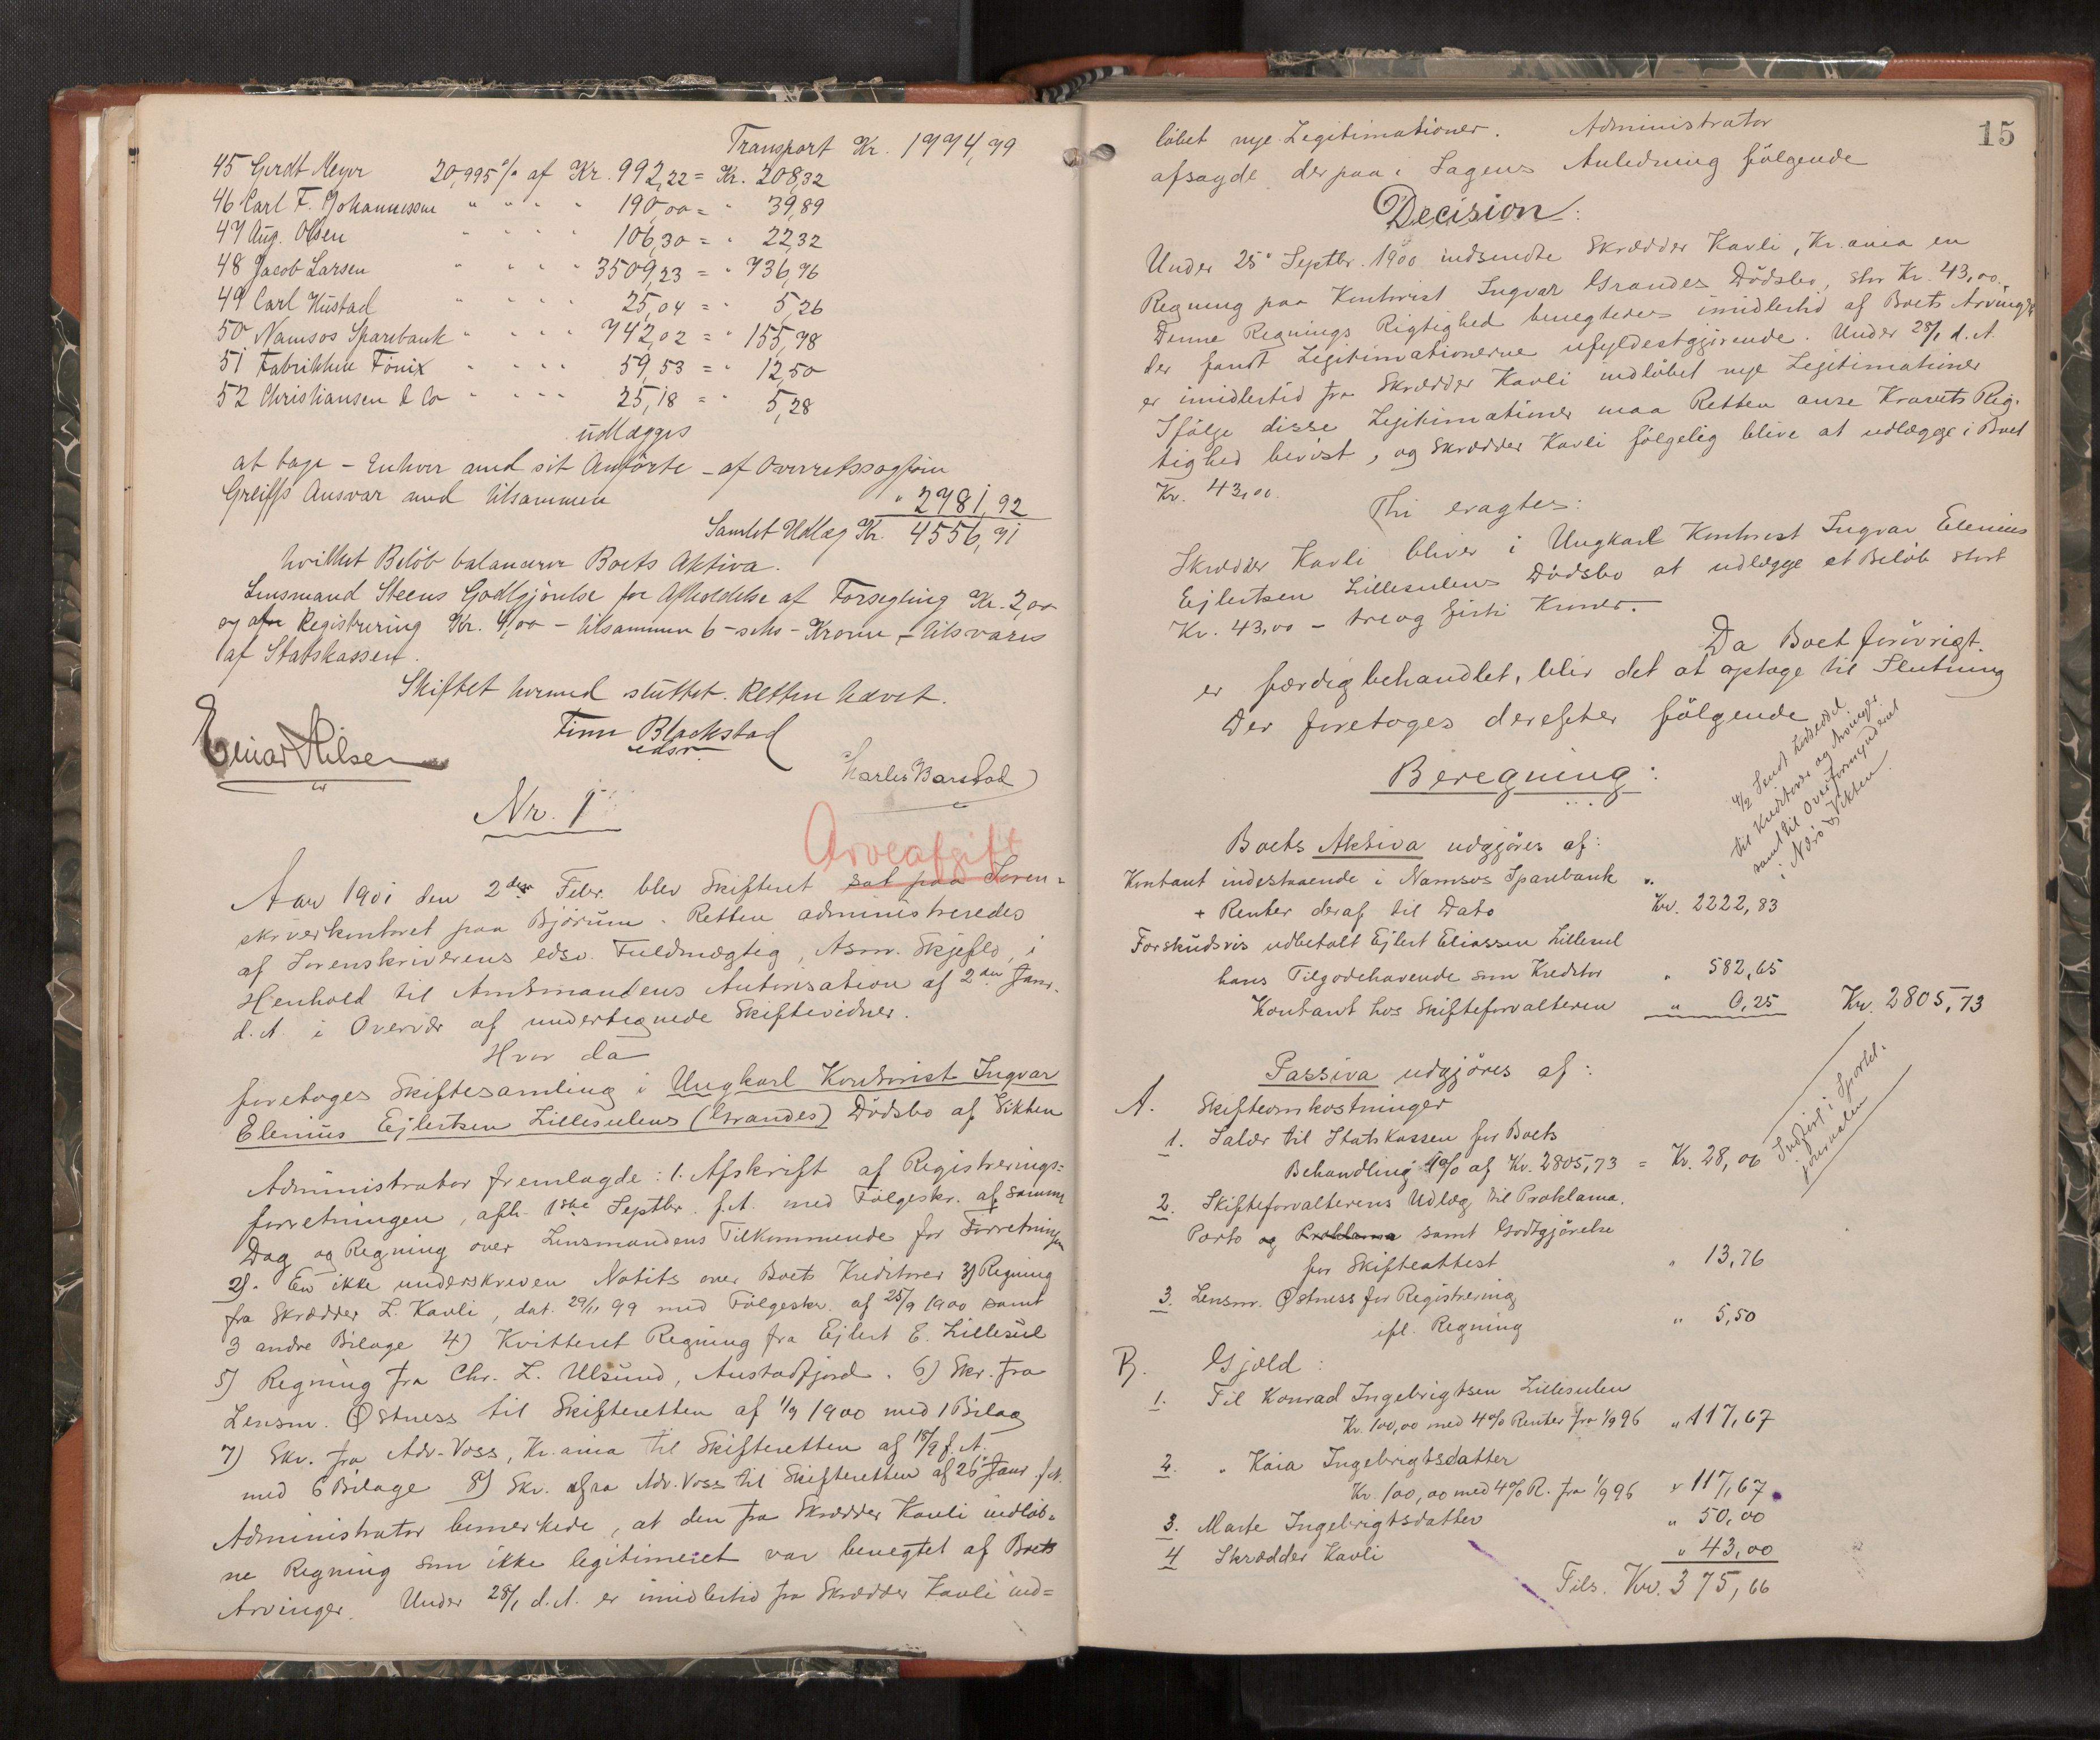 Transport Kr. 1774,79
45 Gerdt Meyer 20,995% af Kr. 992,22 = Kr. 208,32
46 Carl F. Johannessen " " " " 190,00 = " 39,89
47 Aug. Olsen " " " " 106,30 = " 22,32
48 Jacob Larsen " " " " 3509,23 = " 736,76
49 Carl Hustad " " " " 25,04 = " 5,26
50 Namsos Sparebank " " " " 742,02 = " 155,78
51 Fabrikken Fönix " " " " 59,53 = " 12,50
52 Christiansen & Co " " " " 25,18 = " 5,28
udlægges
at tage - Enhver med sit Anførte - af Overretssagfører
Greiffs Ansvar med tilsammen " 2781,92
Samlet Udlæg Kr. 4556,71
hvilket Beløb balancerer Boets Aktiva.
Lensmand Steens Godtgjørelse for Afholdelse af Forsegling Kr. 2,00
og for Registrering Kr. 4,00 - tilsammen 6 - seks - Kroner - tilsvares
af Statskassen.
Skiftet hermed sluttet. Retten hævet.
Finn Blackstad
edsv.
Einar Nilsen
Charles Barstad
Nr. 1
Arveafgift
Aar 1901 den 2den Febr. blev Skifteret sat paa Soren-
skriverkontoret paa Bjørum. Retten administreredes
af Sorenskriverens edsv. Fuldmægtig, Asm. Skjeflo, i
Henhold til Amtmandens Autorisation af 2den Janr.
d. A. i Overvær af undertegnede Skiftevidner.
Hvor da
foretoges Skiftesamling i Ungkarl Kontorist Ingvar
Elenius Ejlertsen Lillesulens (Grandes) Dödsbo af Vikten
Administrator fremlagde: 1. Afskrift af Registrerings=
forretningen, afh. 1ste Septbr. f. A. med Følgeskr. af samme
Dag og Regning over Lensmandens Tilkommende for Forretningen
2). En ikke underskreven Notits over Boets Kreditorer 3) Regning
fra Skrædder L. Kavli, dat. 29/11 99 med Følgeskr. af 25/9 1900 samt
3 andre Bilage 4) Kvitteret Regning fra Ejlert E. Lillesul
5) Regning fra Chr. L. Ulsund, Austadfjord. 6) Skr. fra
Lensm. Østness til Skifteretten af 1/9 1900 med 1 Bilag
7) Skr. fra Adv. Voss, Kr.ania til Skifteretten af 18/9 f. A.
med 6 Bilage 8) Skr. fra Adv. Voss til Skifteretten af 26 Janr f. A.
Administrator bemerkede, at den fra Skrædder Kavli indløb-
ne Regning som ikke legitimeret var benegtet af Boets
Arvinger. Under 28/1 d. A. er imidlertid fra Skrædder Kavli ind=
15
løbet nye Legitimationer. Administrator
afsagde derpaa i Sagens Anledning følgende
Decision:
Under 25' Septbr. 1900 indsendte Skrædder Kavli, Kr.ania en
Regning paa Kontorist Ingvar Grandes Dödsbo, stor Kr. 43,00.
Denne Regnings Rigtighed benegtedes imidlertid af Boets Arvinger
der fandt Legitimationerne ufyldestgjørende. Under 28/1 d. A.
er imidlertid fra Skrædder Kavli indløbet nye Legitimationer
Ifølge disse Legitimationer maa Retten anse Kravets Rig-
tighed bevist, og Skrædder Kavli følgelig blive at udlægge i Boet
Kr. 43,00.
Thi eragtes:
Skrædder Kavli bliver i Ungkarl Kontorist Ingvar Elenius
Ejlertsen Lillesulens Dödsbo at udlægge et Beløb stort
Kr. 43,00 - treog firti Kroner.
Da Boet forøvrigt
er færdigbehandlet, blir det at optage til Slutning
Der foretoges derefter følgende
Beregning:
4/2 Sendt Lodseddel
til Kreditorer og Arvinger
samt til Overformynderiet
i Nærø & Vikten.
Boets Aktiva udgjøres af:
Kontant indestaaende i Namsos Sparebank
+ Renter deraf til Dato Kr. 2222,83
Forskudsvis udbetalt Ejlert Eliassen Lillesul
hans Tilgodehavende som Kreditor " 582,65
Kontant hos Skifteforvalteren " 0,25 Kr. 2805,73
Passiva udgjøres af:
A. Skifteomkostninger
1. Salær til Statskassen for Boets
Behandling 1% af Kr. 2805,73 = Kr. 28,06
Indført i Sportel-
journalen
2. Skifteforvalterens Udlæg til Proklama,
Porto og Proklama samt Godtgjørelse
for Skifteattest " 13,76
3. Lensm. Østness for Registrering
ifl. Regning " 5,50
B. Gjæld:
1. Til Konrad Ingebrigtsen Lillesulen
Kr. 100,00 med 4% Renter fra 1/9 96 " 117,67
2. " Kaia Ingebrigtsdatter
Kr. 100,00 med 4% R. fra 1/9 96 " 117,67
3. Marte Ingebrigtsdatter " 50,00
4 Skrædder Kavli " 43,00
Tils. Kr. 375,66